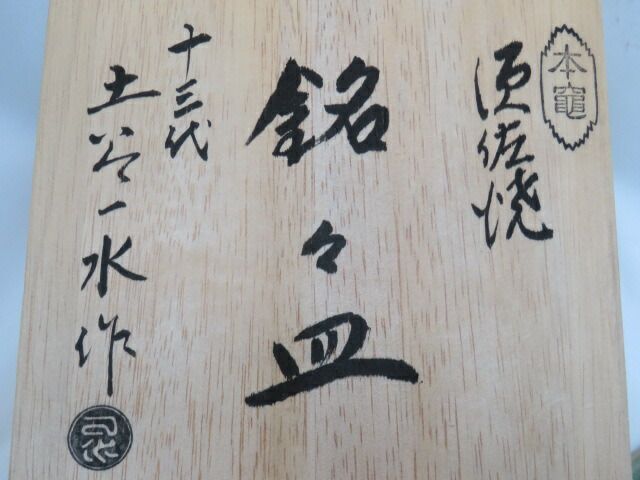 本窯
須佐焼
銘々皿
十三代
土谷一水作